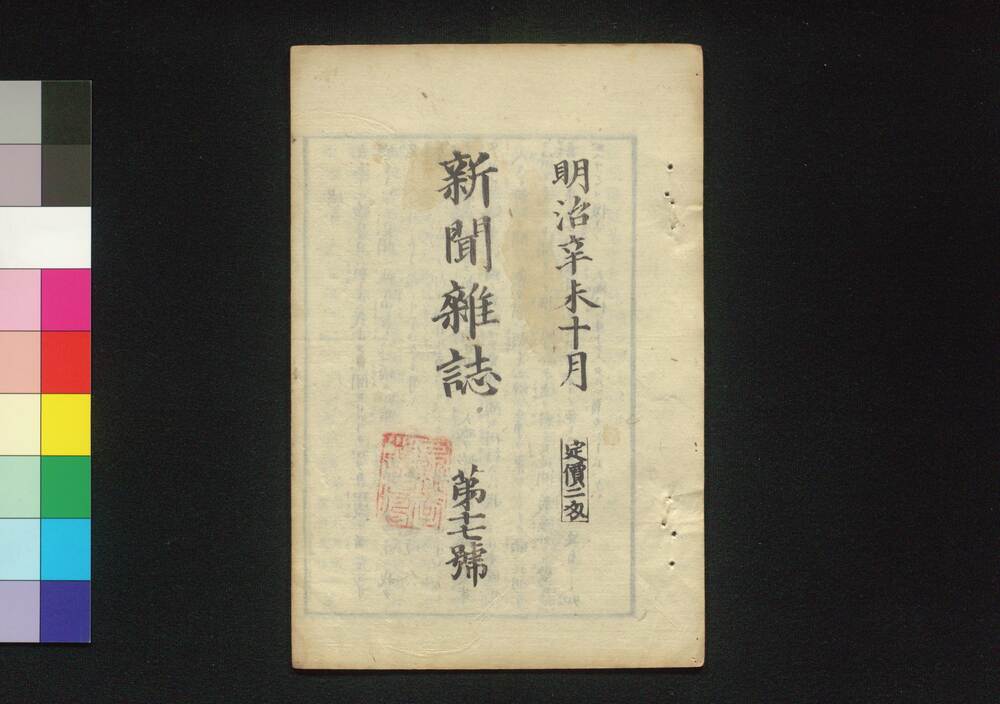 明治辛未十月
定價二匁
新聞雜誌
第十七號